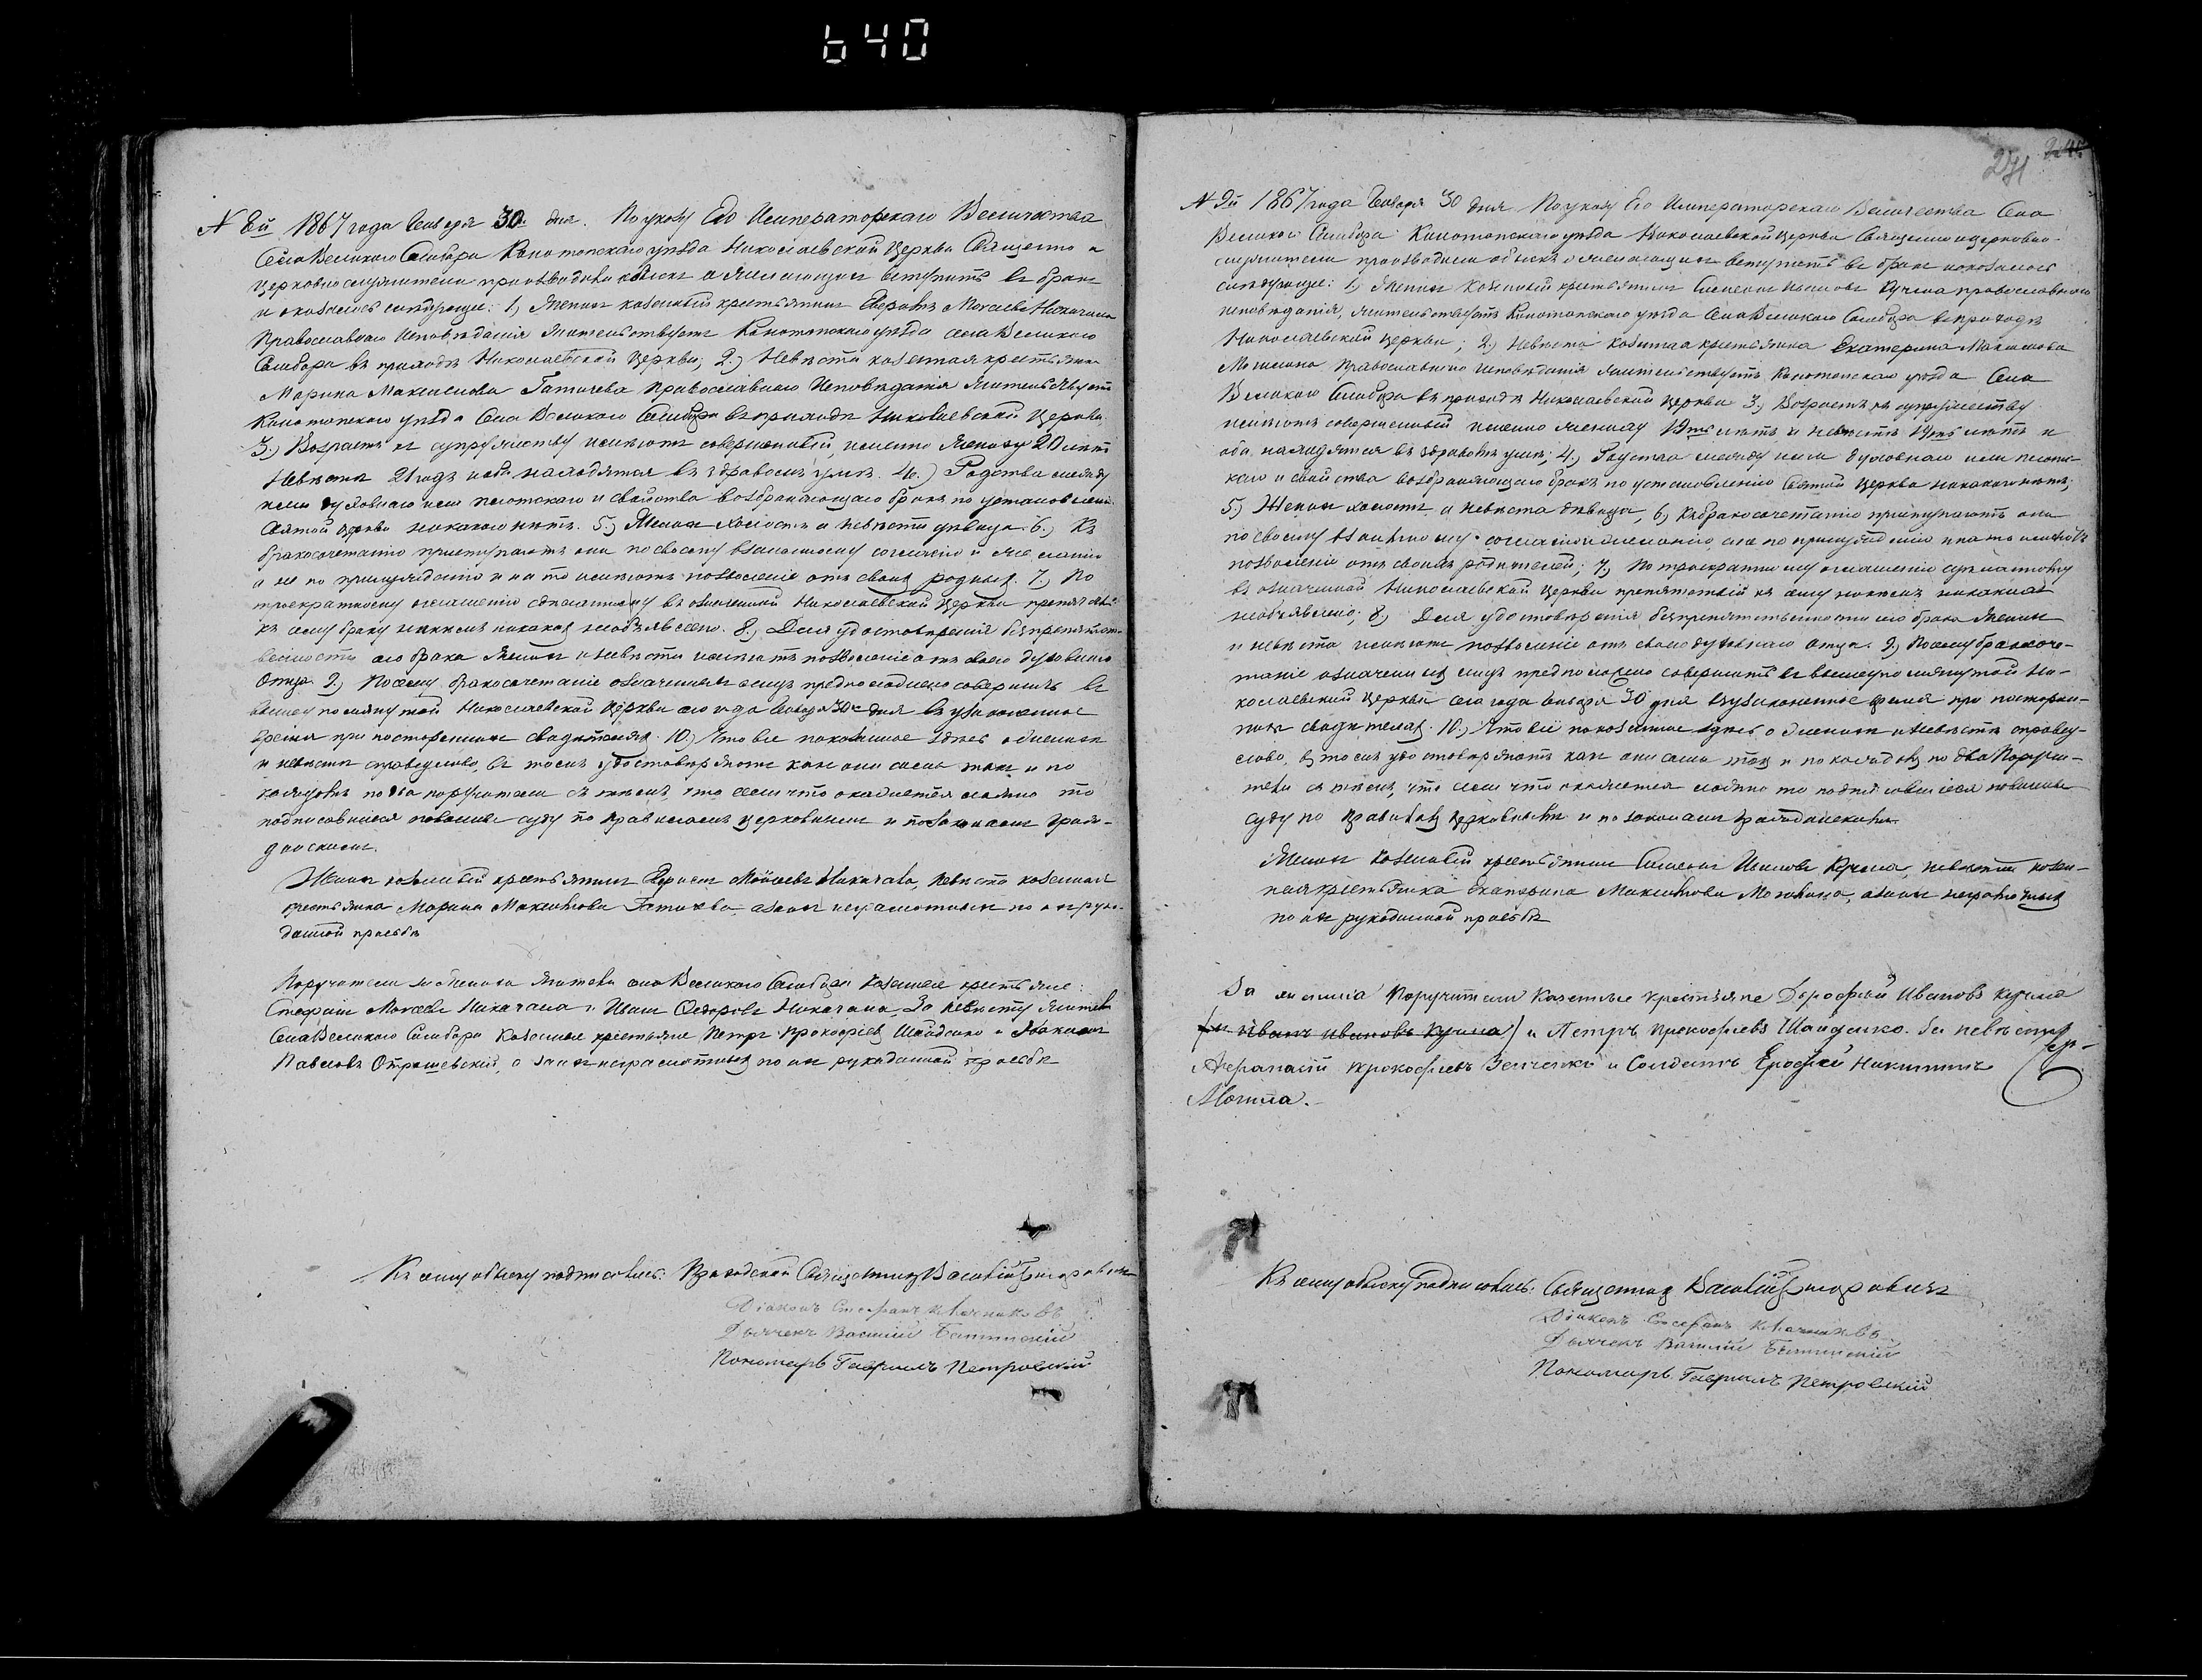 640
241
N 8й 1867 года Января 30 дня. По указу Его Императорскаго Величества
Села Великаго Самбора Конотопскаго уѣзда Николаевской Церкви Священно и
церковно служители производили обыскъ о желающихъ вступить въ бракъ
и оказалось слѣдующее: 1.) Женихъ казенный крестьянинъ Моисеевъ
Православнаго Исповѣданія жительствуетъ Конотопскаго уѣзда села Великаго
Самбора въ приходѣ Николаевской Церкви; 2.) Невѣста казенная крестьянка
Марина Максимова Православнаго Исповѣданія жительствуетъ
Конотопскаго уѣзда Села Великаго Самбора въ приходѣ Николаевской Церкви.
3.) Возрастъ къ супружеству имѣютъ совершенный, именно жениху 20 лѣтъ
Невѣстѣ 21 годъ и оба находятся въ здравомъ умѣ. 4.) Родства между
ними духовнаго или плотскаго и свойства возбраняющаго бракъ по установленію
Святой Церкви никакого нѣтъ. 5.) Женихъ холостъ а невѣста дѣвица. 6.) Къ
бракосочетанію приступаютъ они по своему взаимному согласію и желанію
а не по принужденію и на то имѣютъ позволеніе отъ своихъ родныхъ. 7.) По
троекратному оглашенію сдѣланному въ означенной Николаевской Церкви препятствій
къ сему браку никемъ никакихъ необъявлено. 8.) Для удостовѣренія безпрепятст-
венности сего брака женихъ и невѣста имѣютъ позволеніе отъ своего духовнаго
Отца. 9.) Посему бракосочетаніе означенныхъ лицъ предположено совершить въ
вышеупомянутой Николаевской Церкви сего года Января 30 дня въ узаконенное
время при постороннихъ свидѣтеляхъ. 10.) Что все показанное здѣсь о женихѣ
и невѣстѣ справедливо, въ томъ удостовѣряютъ какъ они сами такъ и по
каждомъ по два поручителя съ тѣмъ, что если что окажется ложно то
подписавшіеся повинны суду по правиламъ церковнымъ и по законамъ граж-
данскимъ.
Женихъ казенный крестьянинъ Моисеевъ Невѣста казенная
крестьянка Марина Максимова а за ихъ неграмотныхъ по ихъ руко-
данной прозьбѣ
Поручители по женихѣ жители села Великаго Самбора казенные крестьяне:
Стефанъ Моисеевъ и Иванъ Федоровъ За невѣсту жители
Села Великаго Самбора казенные крестьяне Петръ Прокофіевъ Шайденко и
Павловъ а за ихъ неграмотныхъ по ихъ рукоданной прозьбѣ
Къ сему обыску подписались: Приходской Священникъ Василій Григоровичъ
Діаконъ Стефанъ
Дьячекъ Василій
Пономарь Гавріилъ Петровскій
N 9й 1867 года Января 30 дня По указу Его Императорскаго Величества Села
Великаго Самбора Конотопскаго уѣзда Николаевской Церкви Священно и церковно-
служители производили обыскъ о желающихъ вступить въ бракъ и оказалось
слѣдующее: 1.) Женихъ казенный крестьянинъ Симеонъ Ивановъ Кучма православнаго
исповѣданія, жительствуетъ Конотопскаго уѣзда Села Великаго Самбора въ приходѣ
Николаевской Церкви; 2.) Невѣста казенная крестьянка Екатерина Максимова
Могилина Православнаго исповѣданія жительствуетъ Конотопскаго уѣзда Села
Великаго Самбора въ приходѣ Николаевской Церкви 3.) Возрастъ къ супружеству
имѣютъ совершенный именно жениху 19ть лѣтъ и невѣстѣ 19ть лѣтъ и
оба находятся въ здравомъ умѣ; 4.) Родства между ними духовнаго или плотс-
каго и свойства возбраняющаго бракъ по установленію Святой Церкви никакого нѣтъ;
5.) Женихъ холостъ а невѣста дѣвица, 6.) Къ бракосочетанію приступаютъ они
по своему взаимному согласію и желанію, а не по принужденію и на то имѣютъ
позволеніе отъ своихъ родителей; 7.) По троекратному оглашенію сдѣланному
въ означенной Николаевской Церкви препятствій къ сему никемъ никакихъ
необъявлено; 8.) Для удостовѣренія безпрепятственности сего брака женихъ
и невѣста имѣютъ позволеніе отъ своего духовнаго Отца. 9.) Посему бракосоче-
таніе означенныхъ лицъ предположено совершить въ вышеупомянутой Ни-
колаевской Церкви сего года Января 30 дня въ узаконенное время при посторон-
нихъ свидѣтеляхъ. 10.) Что все показанное здѣсь о женихѣ и невѣстѣ справед-
ливо, въ томъ удостовѣряютъ какъ они сами такъ и по каждомъ по два поручи-
теля съ тѣмъ, что если что окажется ложно то подписавшіеся повинны
суду по правиламъ церковнымъ и по законамъ гражданскимъ.
Женихъ казенный крестьянинъ Симеонъ Ивановъ Кучма, невѣста казен-
ная крестьянка Екатерина Максимова Могилина, а за ихъ неграмотныхъ
по ихъ рукоданной прозьбѣ
За жениха Поручители Казенные крестьяне Дорофей Ивановъ Кучма
(и Иванъ Ивановъ Кучма) и Петръ Прокофіевъ Шайденко. За невѣсту
Афанасій Прокофіевъ и Солдатъ Ерофей Никитинъ
Могила.
Къ сему обыску подписались: Священникъ Василій Григоровичъ
Діаконъ Стефанъ
Дьячекъ Василій
Пономарь Гавріилъ Петровскій